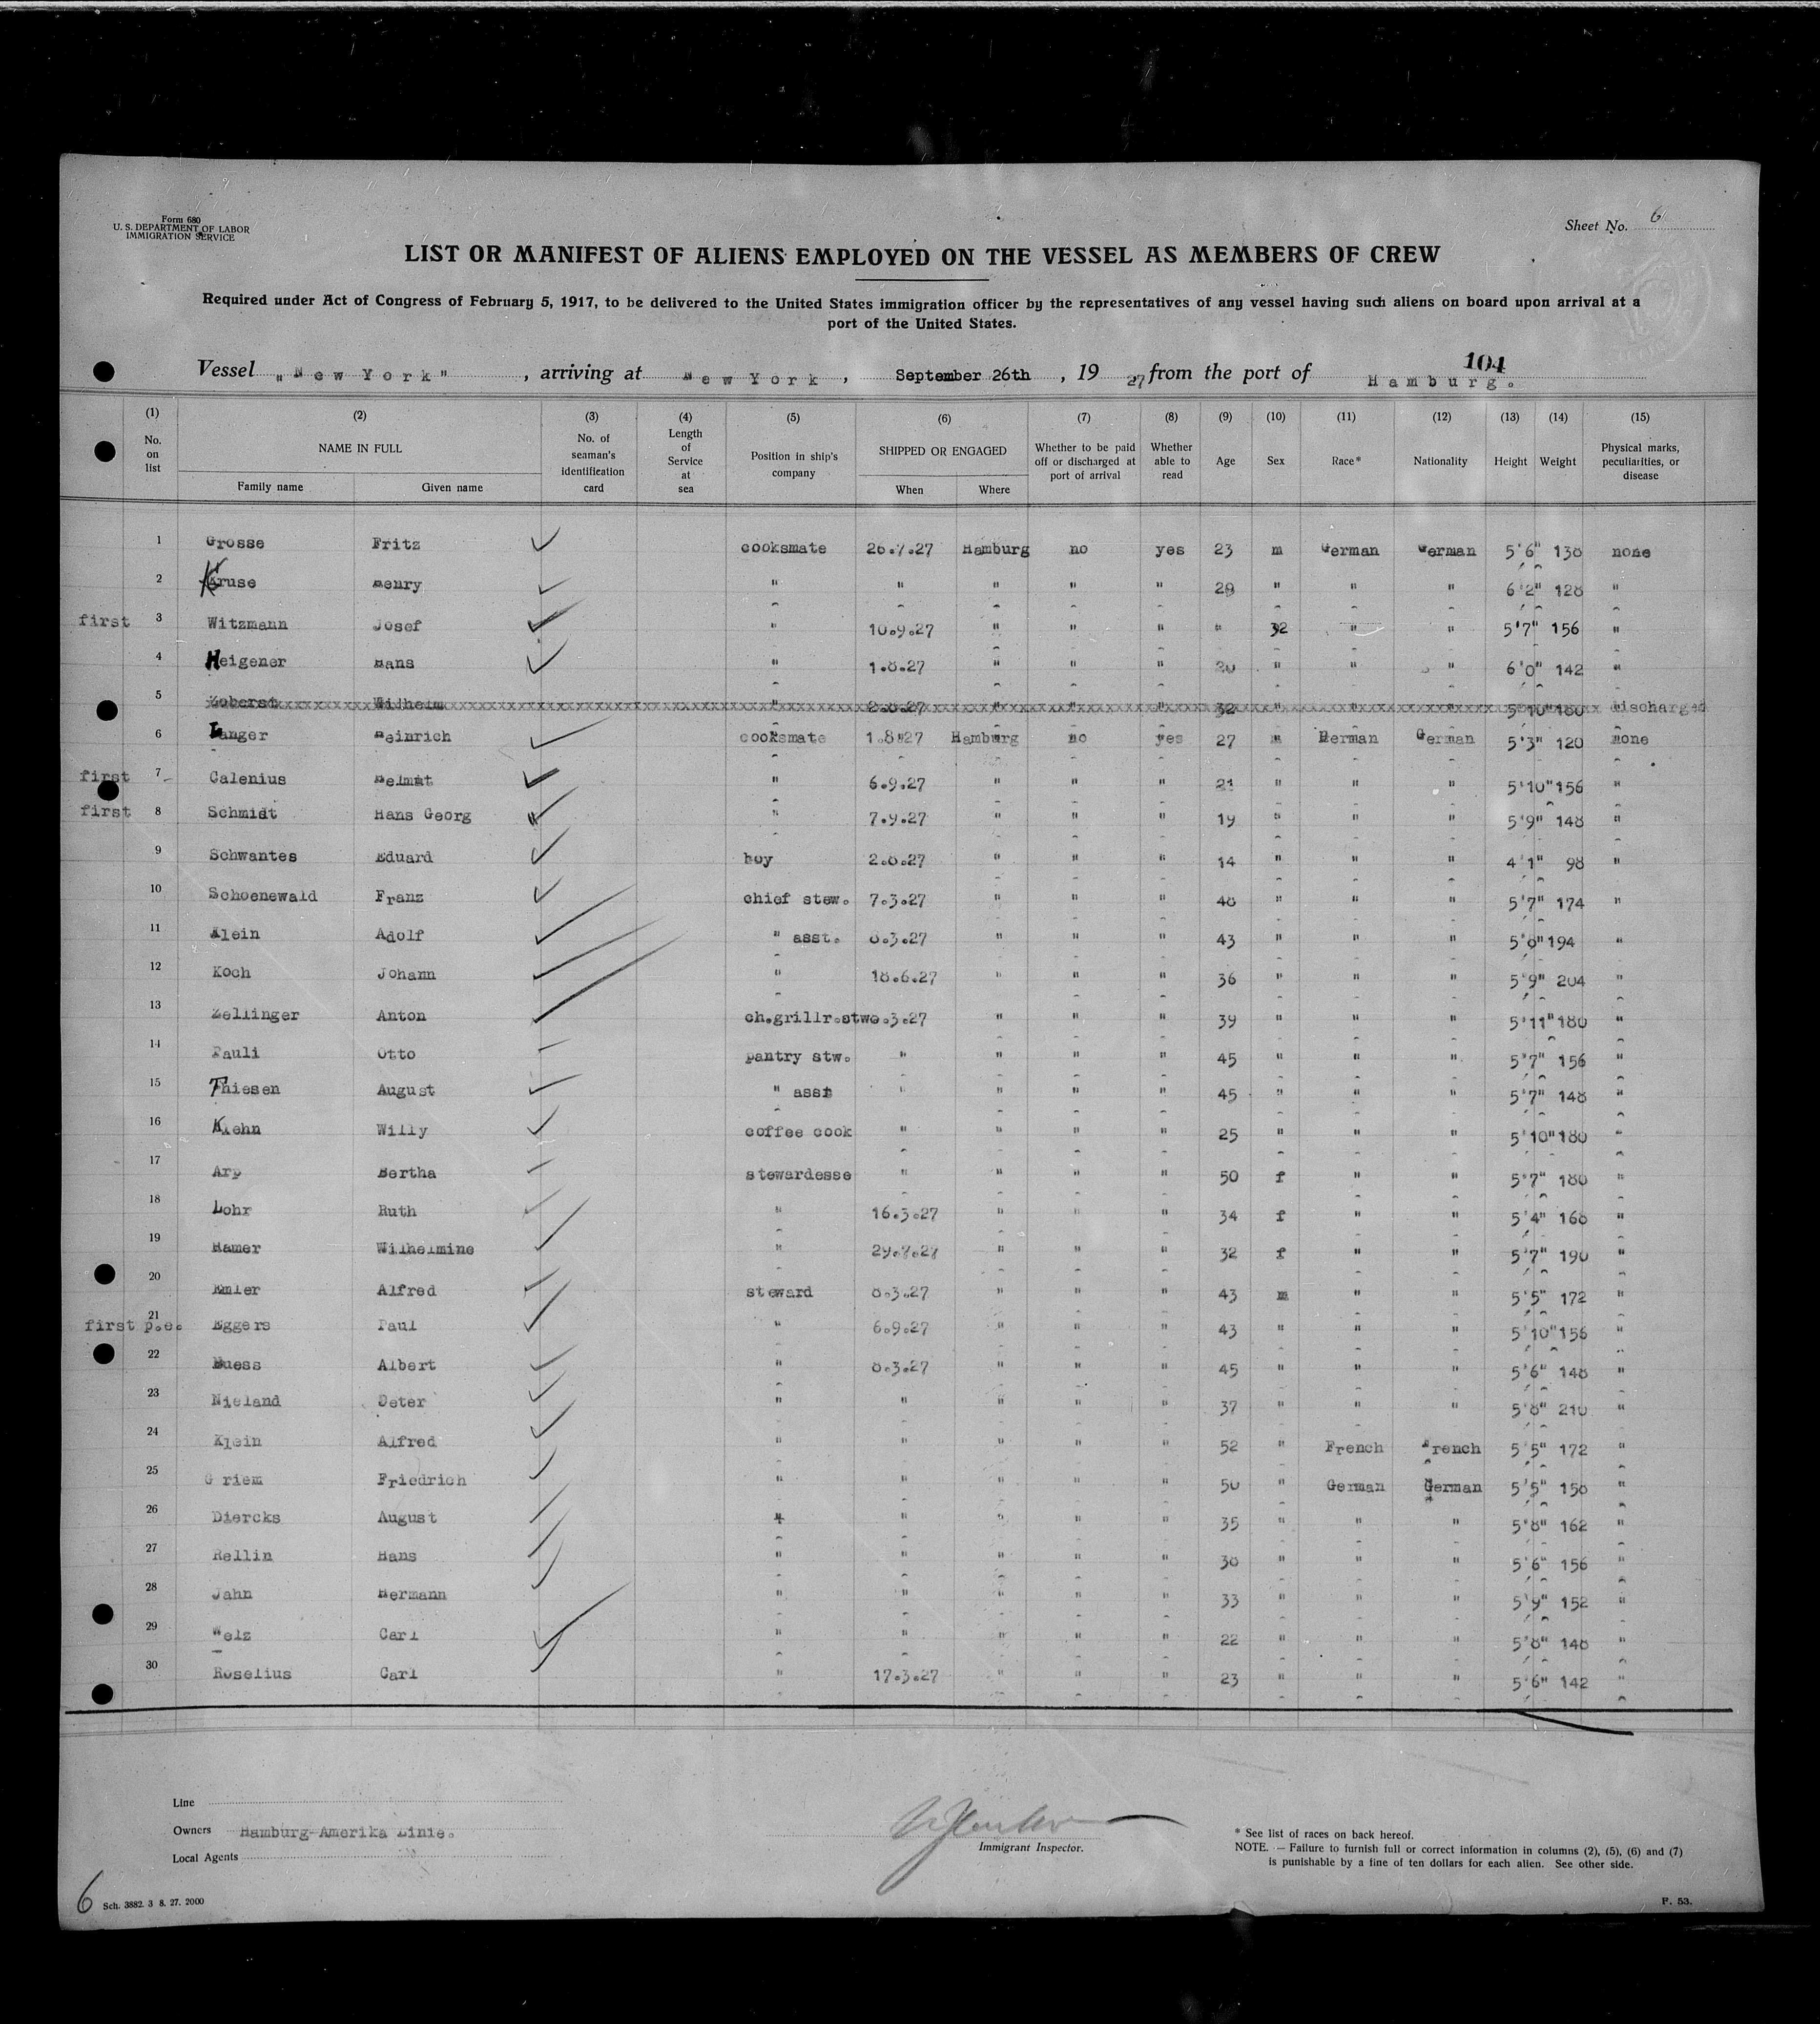 Form 680
U. S. DEPARTMENT OF LABOR
IMMIGRATION SERVICE
Sheet No. 6
LIST OR MANIFEST OF ALIENS EMPLOYED ON THE VESSEL AS MEMBERS OF CREW
Required under Act of Congress of February 5, 1917, to be delivered to the United States immigration officer by the representatives of any vessel having such aliens on board upon arrival at a
port of the United States.
104
Vessel "New York", arriving at New York, September 26th, 1927, from the port of Hamburg.
(1) (2) (3) (4) (5) (6) (7) (8) (9) (10) (11) (12) (13) (14) (15)
No. on list NAME IN FULL Family name Given name No. of seaman's identification card Length of Service at sea Position in ship's company SHIPPED OR ENGAGED When Where Whether to be paid off or discharged at port of arrival Whether able to read Age Sex Race* Nationality Height Weight Physical marks, peculiarities, or disease
1 Grosse Fritz cooksmate 26.7.27 Hamburg no yes 23 m German German 5'6" 138 none
2 Kruse Henry " " " " " 28 " " " 6'2" 128 "
first 3 Witzmann Josef " 10.9.27 " " " " 32 " " 5'7" 156 "
4 Heigener Hans " 1.8.27 " " " 20 " " " 6'0" 142 "
5 Zoberst Wilhelm " 2.8.27 " " " 32 " " " 5'10" 180 discharged
6 Langer Heinrich cooksmate 1.8.27 Hamburg no yes 27 m German German 5'3" 120 none
first 7 Calenius Helmut " 6.9.27 " " " 21 " " " 5'10" 156 "
first 8 Schmidt Hans Georg " 7.9.27 " " " 19 " " " 5'9" 148 "
9 Schwantes Eduard boy 2.8.27 " " " 14 " " " 4'1" 98 "
10 Schoenewald Franz chief stew. 7.3.27 " " " 48 " " " 5'7" 174 "
11 Klein Adolf " asst. 8.3.27 " " " 43 " " " 5'8" 194 "
12 Koch Johann " 18.6.27 " " " 36 " " " 5'9" 204 "
13 Zellinger Anton ch.grillr.stw8.3.27 " " " 39 " " " 5'11" 180 "
14 Pauli Otto pantry stw. " " " " 45 " " " 5'7" 156 "
15 Thiesen August " asst " " " " 45 " " " 5'7" 148 "
16 Klehn Willy coffee cook " " " " 25 " " " 5'10" 180 "
17 Arp Bertha stewardesse " " " " 50 f " " 5'7" 180 "
18 Lohr Ruth " 16.3.27 " " " 34 f " " 5'4" 168 "
19 Hamer Wilhelmine " 29.7.27 " " " 32 f " " 5'7" 190 "
20 Emler Alfred steward 8.3.27 " " " 43 m " " 5'5" 172 "
first p.e. 21 Eggers Paul " 6.9.27 " " " 43 " " " 5'10" 156 "
22 Buess Albert " 8.3.27 " " " 45 " " " 5'6" 148 "
23 Nieland Peter " " " " " 37 " " " 5'8" 210 "
24 Klein Alfred " " " " " 52 " French French 5'5" 172 "
25 Griem Friedrich " " " " " 50 " German German 5'5" 158 "
26 Diercks August " " " " " 35 " " " 5'8" 162 "
27 Rellin Hans " " " " " 38 " " " 5'6" 156 "
28 Jahn Hermann " " " " " 33 " " " 5'9" 152 "
29 Welz Carl " " " " " 22 " " " 5'8" 148 "
30 Roselius Carl " 17.3.27 " " " 23 " " " 5'6" 142 "
Line
Owners Hamburg-Amerika Linie.
Local Agents
Immigrant Inspector.
* See list of races on back hereof.
NOTE. — Failure to furnish full or correct information in columns (2), (5), (6) and (7)
is punishable by a fine of ten dollars for each alien. See other side.
6 Sch. 3882. 3 8. 27. 2000
F. 53.